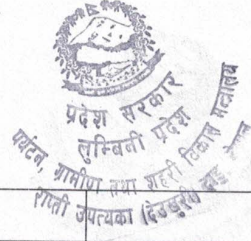 प्रदेश सरकार
लुम्बिनी प्रदेश
पर्यटन, ग्रामीण तथा शहरी विकास मन्त्रालय
राप्ती उपत्यका (देउखुरी) दाङ